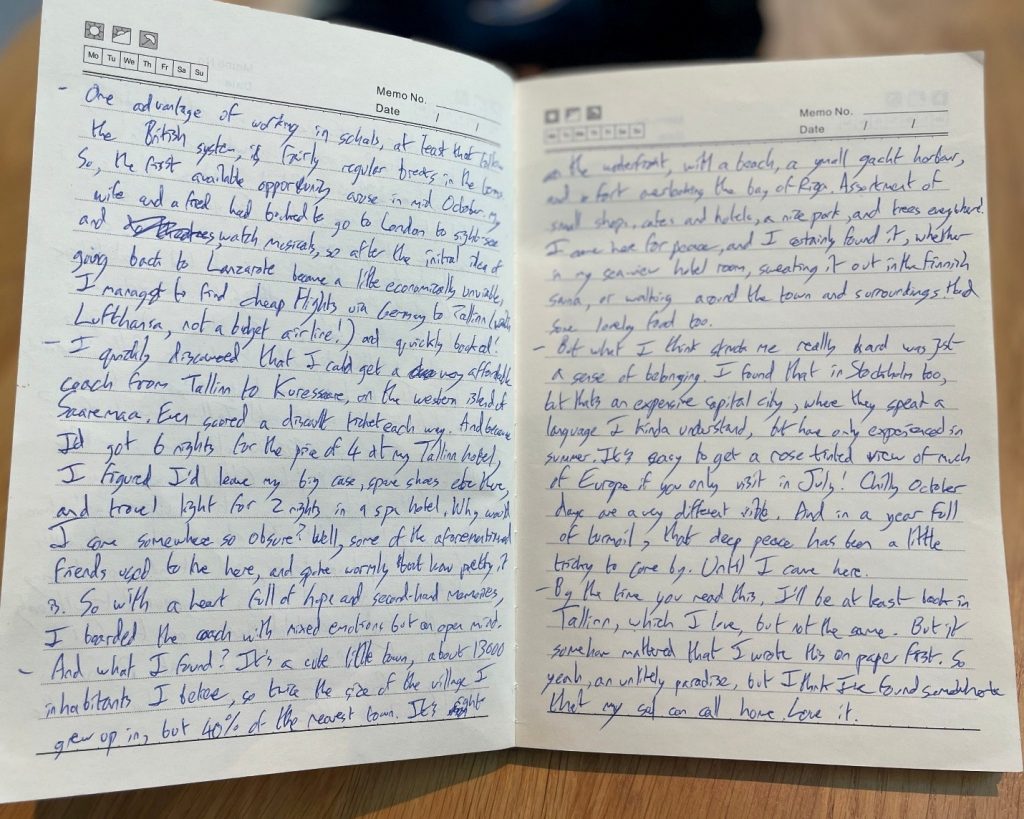 Mo Tu We Th Fr Sa Su
Memo No.
Date / /
- One advantage of working in schools, at least that follow
the British system, is fairly regular breaks in the term.
So, the first available opportunity arose in mid October. My
wife and a friend had booked to go to London to sight-see
and watch musicals, so after the initial idea of
going back to Lanzarote became a little economically unviable,
I managed to find cheap flights via Germany to Tallinn (with
Lufthansa, not a budget airline!) and quickly booked!
- I quickly discovered that I could get a very affordable
coach from Tallinn to Kuressaare, on the western island of
Saaremaa. Even scored a discount ticket each way. And because
I'd got 6 nights for the price of 4 at my Tallinn hotel,
I figured I'd leave my big case, spare shoes etc there,
and travel light for 2 nights in a spa hotel. Why would
I come somewhere so obscure? Well, some of the aforementioned
friends used to live here, and spoke warmly about how pretty it
is. So with a heart full of hope and second-hand memories,
I boarded the coach with mixed emotions but an open mind.
- And what I found? It's a cute little town, about 13000
inhabitants I believe, so twice the size of the village I
grew up in, but 40% of the nearest town. It's right
Memo No.
Date / /
on the waterfront, with a beach, a small yacht harbour,
and a fort overlooking the bay of Riga. Assortment of
small shops, cafes and hotels, a nice park, and trees everywhere.
I came here for peace, and I certainly found it, whether
in my sea-view hotel room, sweating it out in the Finnish
sauna, or walking around the town and surroundings. Had
some lovely food too.
- But what I think struck me really hard was just
a sense of belonging. I found that in Stockholm too,
but that's an expensive capital city, where they speak a
language I kinda understand, but have only experienced in
summer. It's easy to get a rose-tinted view of much
of Europe if you only visit in July! Chilly October
days are a very different vibe. And in a year full
of turmoil, that deep peace has been a little
tricky to come by. Until I came here.
- By the time you read this, I'll be at least back in
Tallinn, which I love, but not the same. But it
somehow mattered that I wrote this on paper first. So
yeah, an unlikely paradise, but I think I've found somewhere
that my soul can call home. Love it.